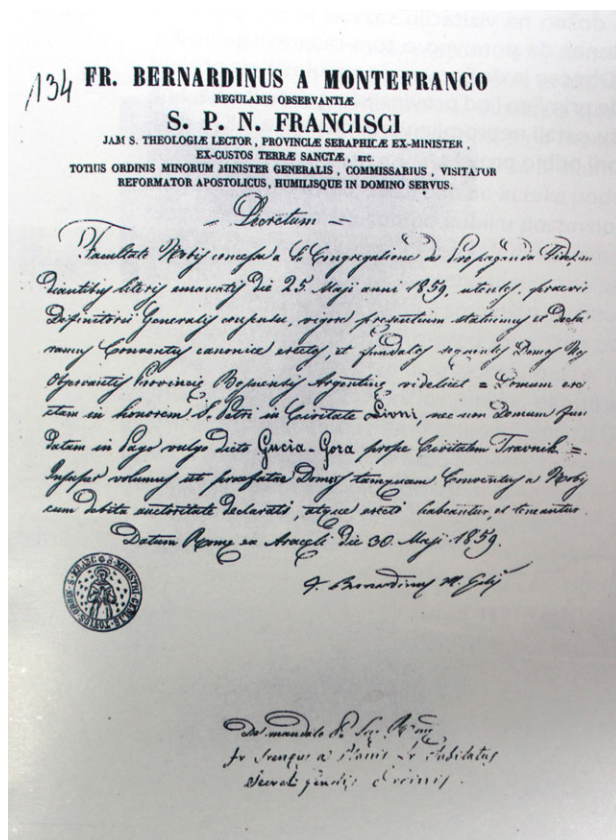 134
FR. BERNARDINUS A MONTEFRANCO
REGULARIS OBSERVANTIÆ
S. P. N. FRANCISCI
JAM S. THEOLOGIÆ LECTOR, PROVINCIÆ SERAPHICÆ EX-MINISTER,
EX-CUSTOS TERRÆ SANCTÆ, ETC.
TOTIUS ORDINIS MINORUM MINISTER GENERALIS, COMMISSARIUS, VISITATOR
REFORMATOR APOSTOLICUS, HUMILISQUE IN DOMINO SERVUS.
Decretum
Facultate Nobis concessa a S. Congregatione de Propaganda Fide, me
diantibus literis emanatis die 25. Maji anni 1859. utentes, praevio
Definitorii Generalis consensu, vigore praesentium statuimus et decla-
ramus Conventus canonice erectos, et fundatos sequentes Domos
Observantis Provinciae Bosnensis Argentinae videlicet = Domum erec
tam in honorem S. Petri in Civitate Livni, nec non Domum fun
datam in Pago vulgo dicto Gucia-Gora prope Civitatem Travnik =
Insuper volumus ut praefatae Domus tamquam Conventus a Nobis
cum debita auctoritate declarati, atque erecti habeantur, et teneantur.
Datum Romae ex Aracoeli die 30. Maji 1859.
F. Bernardinus M. Glis
De mandato P. Suae Rmae
Fr
Secret. Ordinis